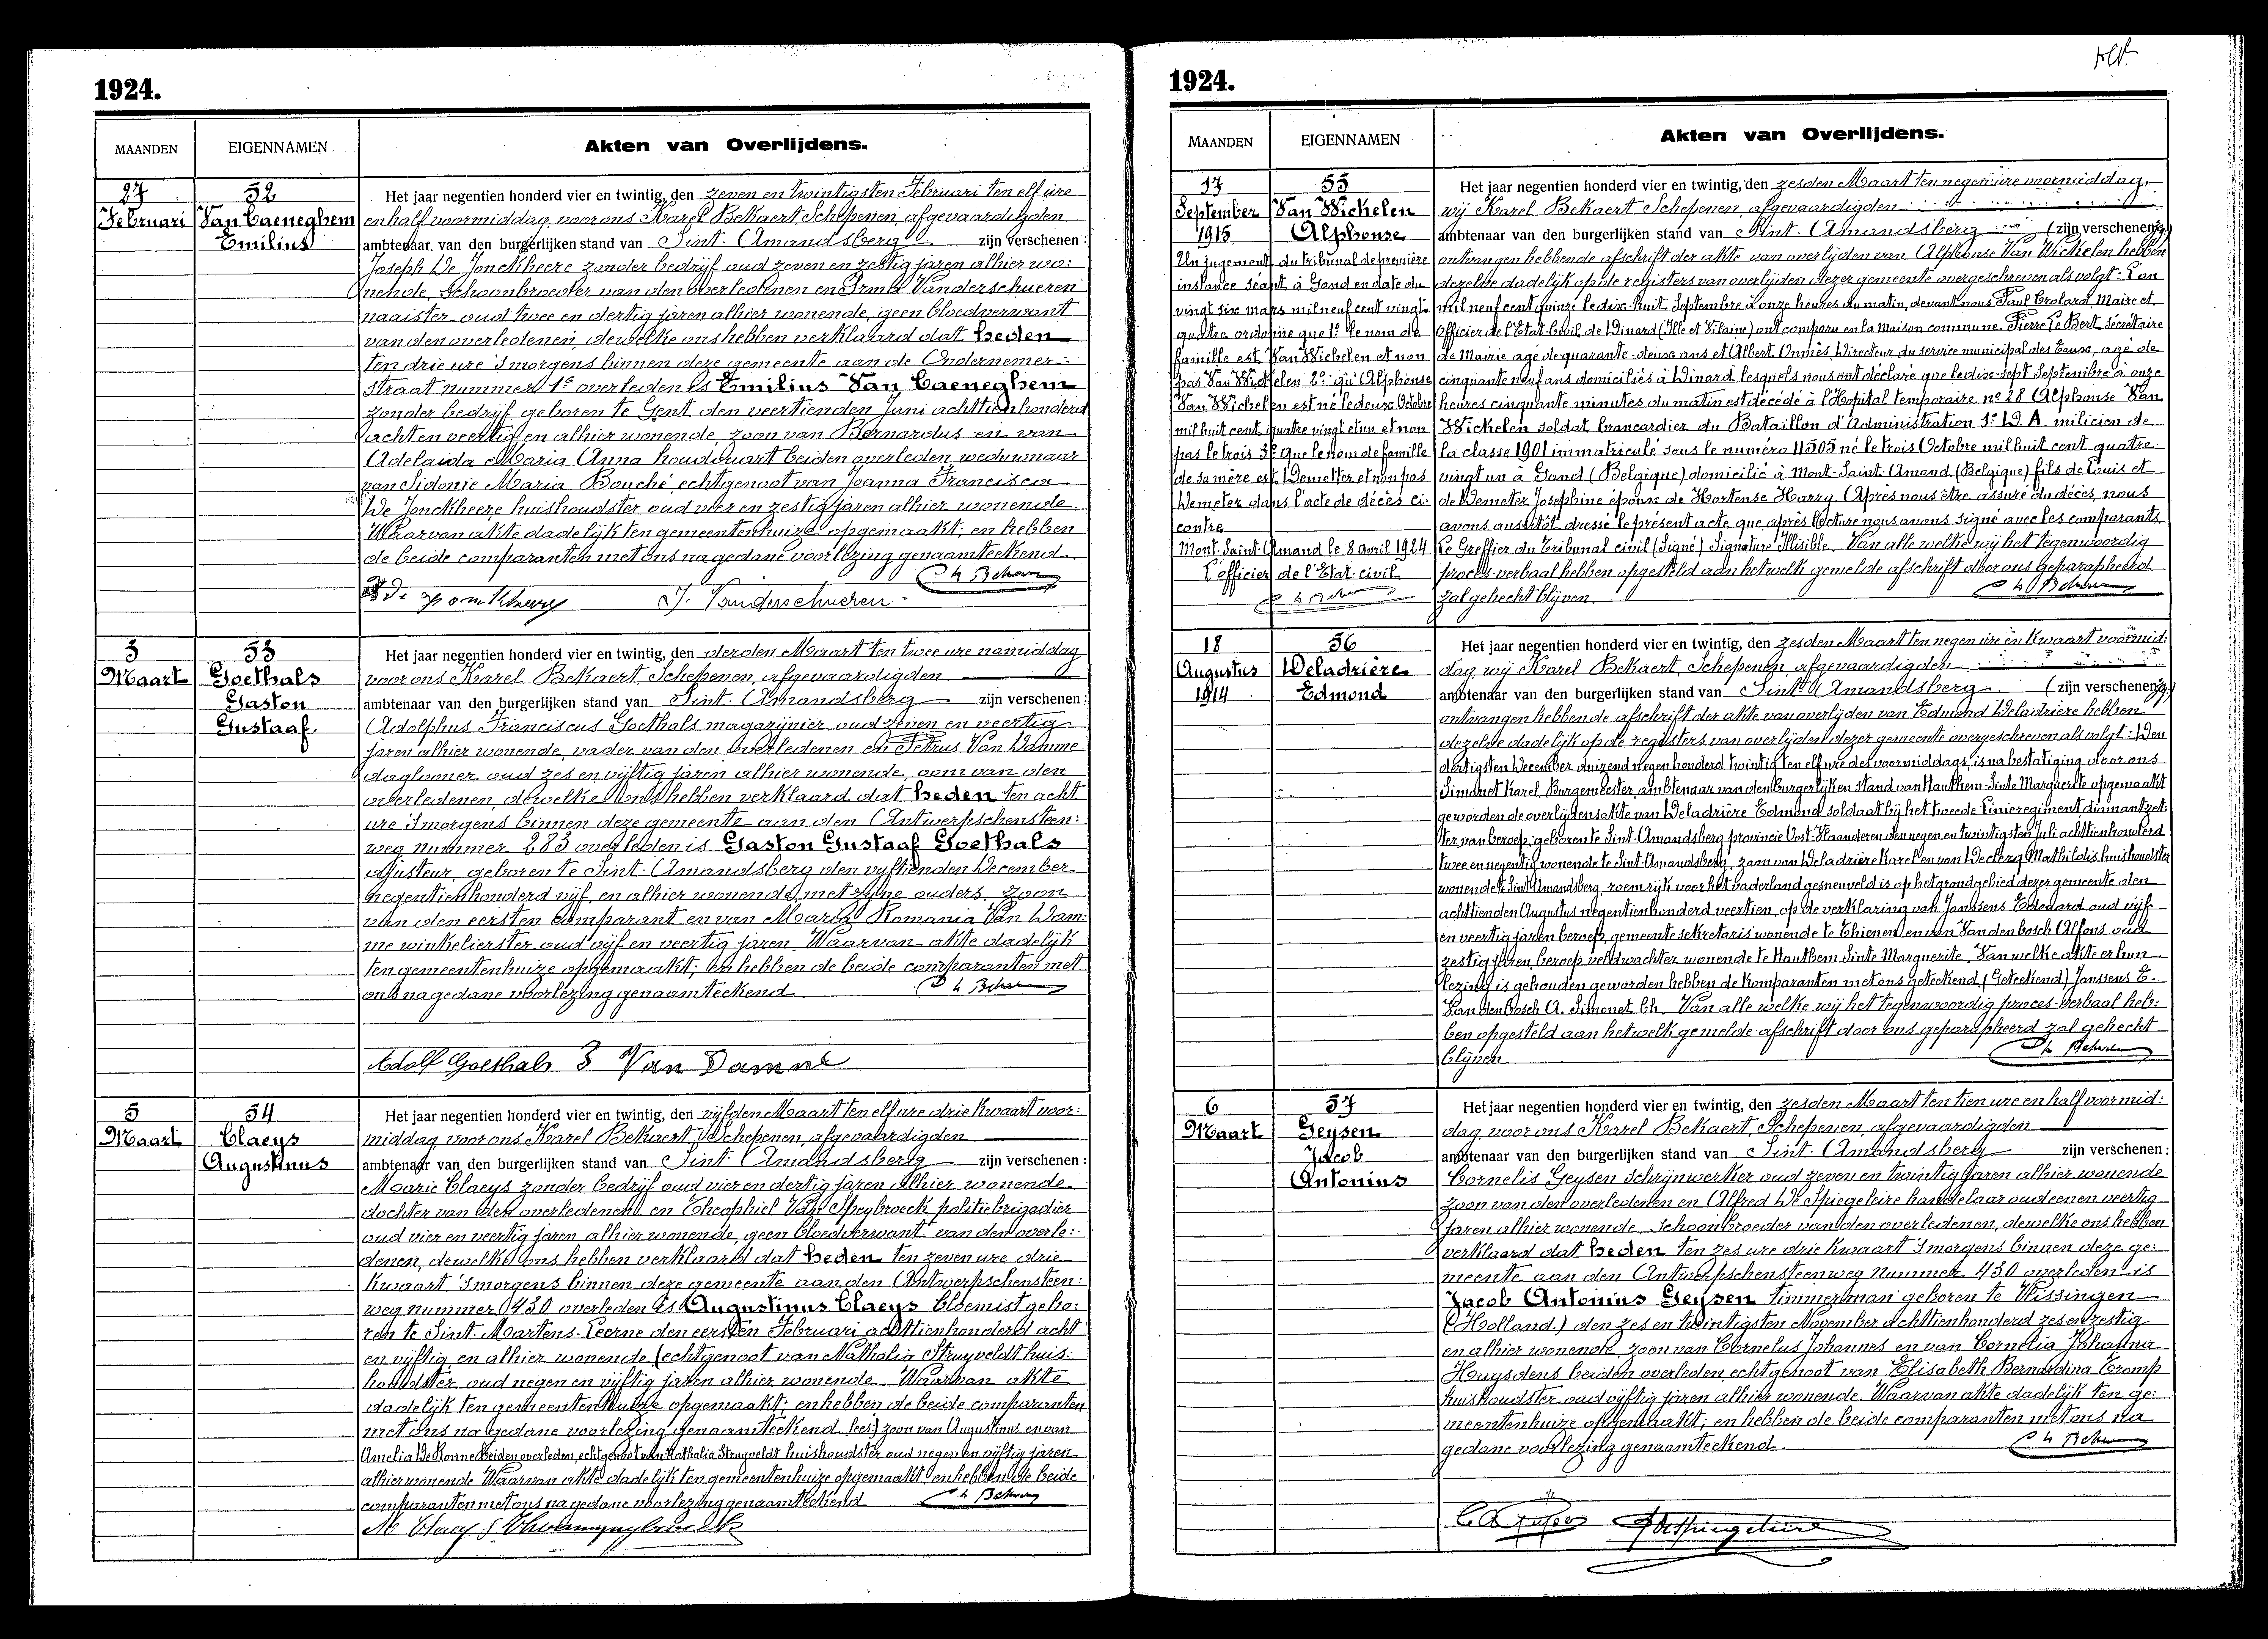 1924.
MAANDEN
EIGENNAMEN
Akten van Overlijdens.
27
Februari
52
Van Caeneghem
Emilius
Het jaar negentien honderd vier en twintig, den zeven en twintigsten Februari ten elf ure
en half voormiddag voor ons Karel Bekaert Schepenen, afgevaardigden
ambtenaar van den burgerlijken stand van Sint-Amandsberg zijn verschenen:
Joseph De Jonckheere zonder bedrijf oud zeven en zestig jaren alhier wo:
nende, schoonbroeder van den overledenen en Irma Vanderschueren
naaister oud twee en dertig jaren alhier wonende, geen bloedverwant
van den overledenen, dewelke ons hebben verklaard dat heden
ten drie ure 's morgens binnen deze gemeente aan de Ondernemer-
straat nummer 1e overleden is Emilius Van Caeneghem
zonder bedrijf geboren te Gent den veertienden Juni achttien honderd
acht en veertig en alhier wonende, zoon van Bernardus en van
Adelaida Maria Anna houdewart beiden overleden weduwnaar
van Sidonie Maria Bouché, echtgenoot van Joanna Francisca
De Jonckheere huishoudster oud vier en zestig jaren alhier wonende.
Waarvan akte dadelijk ten gemeentenhuize opgemaakt; en hebben
de beide comparanten met ons na gedane voorlezing genaamteekend.
J. Vanderschueren
3
Maart
53
Goethals
Gaston
Gustaaf.
Het jaar negentien honderd vier en twintig, den derden Maart ten twee ure namiddag
voor ons Karel Bekaert, Schepenen, afgevaardigden
ambtenaar van den burgerlijken stand van Sint-Amandsberg zijn verschenen:
Adolphus Franciscus Goethals magazijnier oud zeven en veertig
jaren alhier wonende, vader van den overledenen en Petrus Van Damme
daglooner oud zes en vijftig jaren alhier wonende, oom van den
overledenen, dewelke ons hebben verklaard dat heden ten acht
ure 's morgens binnen deze gemeente aan den Antwerpschensteen:
weg nummer 283 overleden is Gaston Gustaaf Goethals
ajusteur, geboren te Sint-Amandsberg den vijftienden December
negentienhonderd vijf, en alhier wonende met zijne ouders, zoon
van den eersten comparant en van Maria Romania Van Dam:
me winkelierster oud vijf en veertig jaren. Waarvan akte dadelijk
ten gemeentenhuize opgemaakt; en hebben de beide comparanten met
ons na gedane voorlezing genaamteekend
Adolf Goethals Van Damme
5
Maart
54
Claeys
Augustinus
Het jaar negentien honderd vier en twintig, den vijfden Maart ten elf ure drie kwaart voor:
middag voor ons Karel Bekaert Schepenen, afgevaardigden
ambtenaar van den burgerlijken stand van Sint-Amandsberg zijn verschenen:
Marie Claeys zonder bedrijf oud vier en dertig jaren alhier wonende
dochter van den overledenen en Theophiel Van Speybroeck politiebrigadier
oud vier en veertig jaren alhier wonende, geen bloedverwant van den overle:
denen, dewelke ons hebben verklaard dat heden ten zeven ure drie
kwaart 's morgens binnen deze gemeente aan den Antwerpschensteen:
weg nummer 430 overleden is Augustinus Claeys bloemist gebo:
ren te Sint-Martens-Leerne den eersten Februari achttienhonderd acht
en vijftig en alhier wonende (echtgenoot van Nathalia Struyveldt huis:
houdster oud negen en vijftig jaren alhier wonende. Waarvan akte
dadelijk ten gemeentenhuize opgemaakt; en hebben de beide comparanten
met ons na gedane voorlezing genaamteekend. lees:) zoon van Augustinus en van
Amelia De Ronne beiden overleden, echtgenoot van Nathalia Struyveldt huishoudster oud negen en vijftig jaren
alhier wonende Waarvan akte dadelijk ten gemeentenhuize opgemaakt, en hebben de beide
comparanten met ons na gedane voorlezing genaamteekend
M Claeys
1924.
MAANDEN
EIGENNAMEN
Akten van Overlijdens.
17
September
1915
55
Van Wickelen
Alphonse
Un jugement du tribunal de première
instance séant à Gand en date du
vingt six mars mil neuf cent vingt-
quatre ordonne que 1° le nom de
famille est Van Wichelen et non
pas Van Wickelen 2° qu'Alphonse
Van Wichelen est né le deux Octobre
mil huit cent quatre vingt et un et non
pas le trois 3° que le nom de famille
de sa mère est Demetter et non pas
Demeter dans l'acte de décès ci-
contre
Mont-Saint-Amand le 8 avril 1924
L'officier de l'Etat-civil
Het jaar negentien honderd vier en twintig, den zesden Maart ten negen ure voormiddag,
wij Karel Bekaert Schepenen, afgevaardigden
ambtenaar van den burgerlijken stand van Sint-Amandsberg (zijn verschenen
ontvangen hebbende afschrift der akte van overlijden van Alphonse Van Wickelen hebben
dezelve dadelijk op de registers van overlijden dezer gemeente overgeschreven als volgt: L'an
mil neuf cent quinze le dix-huit Septembre à onze heures du matin, devant nous Paul Crolard, Maire et
Officier de l'Etat-Civil de Dinard (Ille et Vilaine) ont comparu en la maison commune Pierre Le Bert, Secrétaire
de Mairie agé de quarante-deux ans et Albert Onnès, Directeur du service municipal des Eaux, agé de
cinquante neuf ans domiciliés à Dinard lesquels nous ont déclaré que le dix-sept Septembre à onze
heures cinquante minutes du matin est décédé à l'Hopital temporaire n° 28 Alphonse Van
Wickelen soldat brancardier du Bataillon d'Administration 1e D.A. milicien de
la classe 1901 immatriculé sous le numéro 11505 né le trois Octobre mil huit cent quatre-
vingt un à Gand (Belgique) domicilié à Mont-Saint-Amand (Belgique) fils de Louis et
de Demeter Josephine époux de Hortense Harry. Après nous être assuré du décès, nous
avons aussitôt dressé le présent acte que après lecture nous avons signé avec les comparants.
Le Greffier du tribunal civil (Signé) Signature Illisible. Van alle welke wij het tegenwoordig
proces-verbaal hebben opgesteld aan hetwelk gemelde afschrift door ons geparapheerd
zal gehecht blijven.
18
Augustus
1914
56
Deladrière
Edmond
Het jaar negentien honderd vier en twintig, den zesden Maart ten negen ure en kwaart voormid:
dag, wij Karel Bekaert, Schepenen, afgevaardigden
ambtenaar van den burgerlijken stand van Sint-Amandsberg (zijn verschenen
ontvangen hebbende afschrift der akte van overlijden van Edmond Deladrière hebben
dezelve dadelijk op de registers van overlijden dezer gemeente overgeschreven als volgt: Den
dertigsten December duizend negen honderd twintig ten elf ure des voormiddags, is na bestatiging door ons
Simonet Karel, Burgemeester, ambtenaar van den Burgerlijken stand van Hauthem-Sinte Marguerite opgemaakt
geworden de overlijdensakte van Deladrière Edmond soldaat bij het tweede Linieregiment diamantzet:
ter van beroep, geboren te Sint-Amandsberg provincie Oost-Vlaanderen den negen en twintigsten Juli achttien honderd
twee en negentig wonende te Sint-Amandsberg, zoon van Deladrière Karel en van Declerq Mathildis huishoudster
wonende te Sint-Amandsberg, roemrijk voor het vaderland gesneuveld is op het grondgebied dezer gemeente den
achttienden Augustus negentien honderd veertien, op de verklaring van Janssens Edouard oud vijf
en veertig jaren beroep gemeentesekretaris wonende te Thienen en van Vandenbosch Alfons oud
zestig jaren, beroep veldwachter wonende te Hauthem Sinte Marguerite. Van welke akte er hun
lezing is gehouden geworden hebben de komparanten met ons geteekend, (Geteekend) Janssens E.
Vandenbosch A. Simonet Ch. Van alle welke wij het tegenwoordig proces-verbaal heb:
ben opgesteld aan hetwelk gemelde afschrift door ons geparapheerd zal gehecht
blijven
6
Maart
57
Geysen
Jacob
Antonius
Het jaar negentien honderd vier en twintig, den zesden Maart ten tien ure en half voormid:
dag, voor ons Karel Bekaert, Schepenen, afgevaardigden
ambtenaar van den burgerlijken stand van Sint-Amandsberg zijn verschenen:
Cornelis Geysen schrijnwerker oud zeven en twintig jaren alhier wonende
zoon van den overledenen en Alfred De Spiegeleire handelaar oud eenen veertig
jaren alhier wonende, schoonbroeder van den overledenen, dewelke ons hebben
verklaard dat heden ten zes ure drie kwaart 's morgens binnen deze ge:
meente aan den Antwerpschensteenweg nummer 430 overleden is
Jacob Antonius Geysen timmerman geboren te Vlissingen
(Holland) den zes en twintigsten November achttienhonderd zes en zestig
en alhier wonende, zoon van Cornelus Johannes en van Cornelia Johanna
Huysdens beiden overleden, echtgenoot van Elisabeth Bernardina Tromp
huishoudster oud vijftig jaren alhier wonende. Waarvan akte dadelijk ten ge:
meentenhuize opgemaakt; en hebben de beide comparanten met ons na
gedane voorlezing genaamteekend.